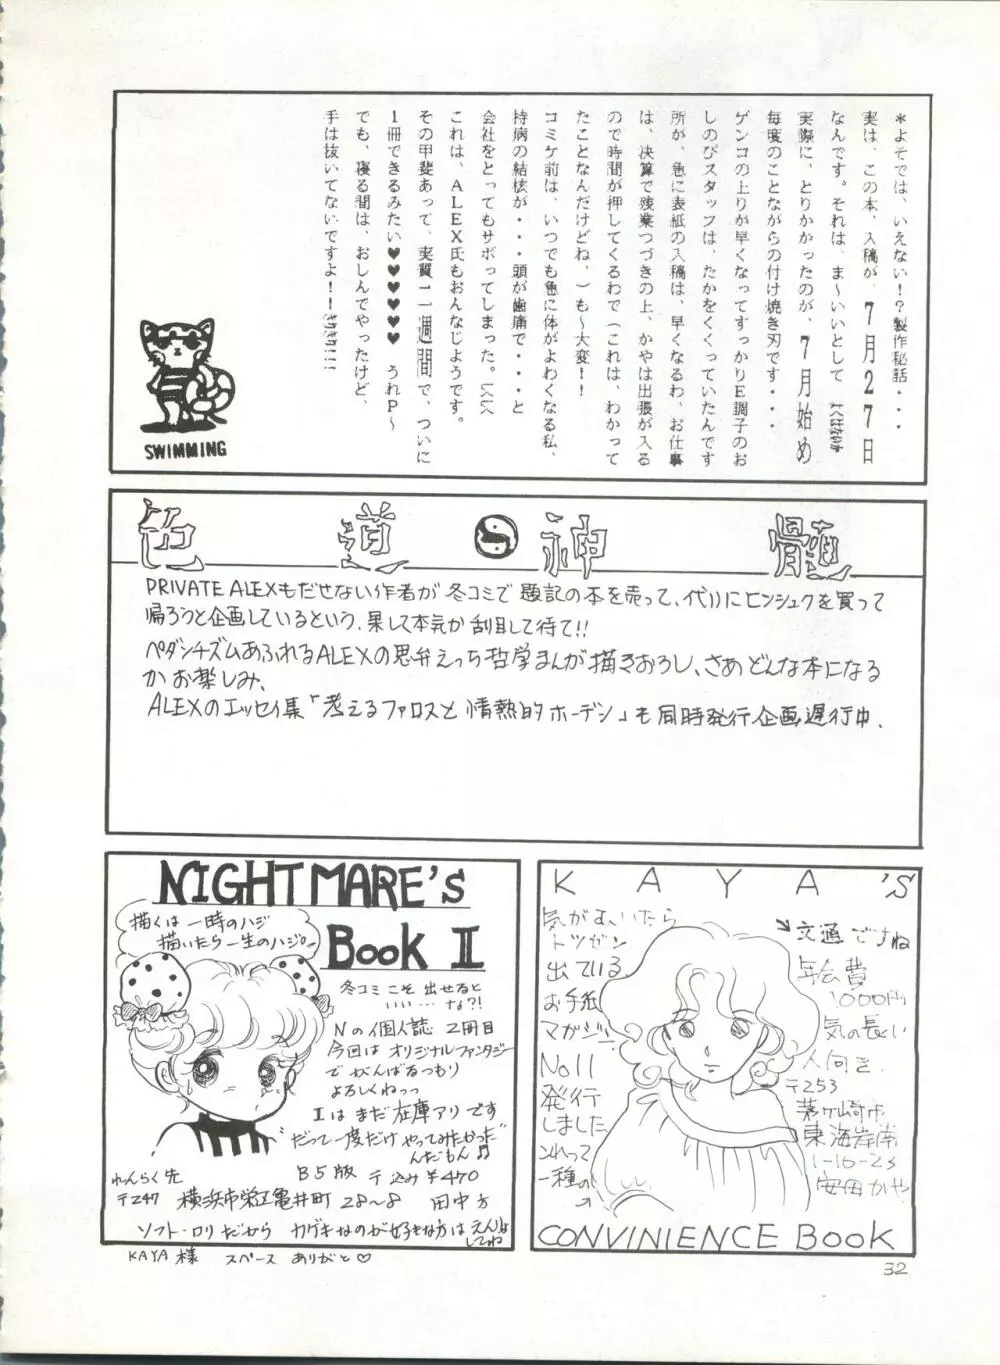 *よそでは、いえない!?製作秘話・・・
実は、この本、入稿が、7月27日
なんです。それは、ま〜いいとして
実際に、とりかかったのが、7月始め
毎度のことながらの付け焼き刃です・・・
ゲンコの上りが早くなってすっかりE調子のお
しのびスタッフは、たかをくくっていたんです
所が、急に表紙の入稿は、早くなるわ、お仕事
は、決算で残業つづきの上、かやは出張が入る
ので時間が押してくるわで(これは、わかって
たことなんだけどね、)も〜大変!!
コミケ前は、いつでも急に体がよわくなる私、
持病の結核が・・・頭が歯痛で・・・と
会社をとってもサボってしまった。くくく
これは、ALEX氏もおんなじようです。
その甲斐あって、実質二週間で、ついに
1冊できるみたい♥♥♥♥♥ うれP〜
でも、寝る間は、おしんでやったけど、
手は抜いてないですよ!!
SWIMMING
色道☯神髄
PRIVATE ALEXもだせない作者が冬コミで題記の本を売って、代りにヒンシュクを買って
帰ろうと企画しているという、果して本気か刮目して待て!!
ペダンチズムあふれるALEXの思弁えっち哲学まんが描きおろし、さあどんな本になる
かお楽しみ、
ALEXのエッセイ集「考えるファロスと情熱的ホーデン」も同時発行企画遅行中.
NIGHTMARE'S
Book II
描くは一時のハジ
描いたら一生のハジ。
冬コミこそ出せると
いい…な?!
Nの個人誌 2冊目
今回は オリジナルファンタジー
で がんばるつもり
よろしくねっっ
Iは まだ在庫アリです
"だって一度だけ やってみたかった"
んだもん♫
れんらく先
B5版 〒込み¥470
〒247 横浜市栄区亀井町 28〜8 田中方
ソフト・ロリだから カゲキなのが好きな方は えんりょ
してね
KAYA様 スペース ありがと♡
KAYA'S
気がむいたら
トツゼン
出ている
お手紙
マガジン.
No11
発行
しました
これって
一種の
文通ですね
年会費
1000円
気の長い
人向き.
〒253
茅ヶ崎市
東海岸南
1-16-23
安田かや
CONVINIENCE BOOK
32